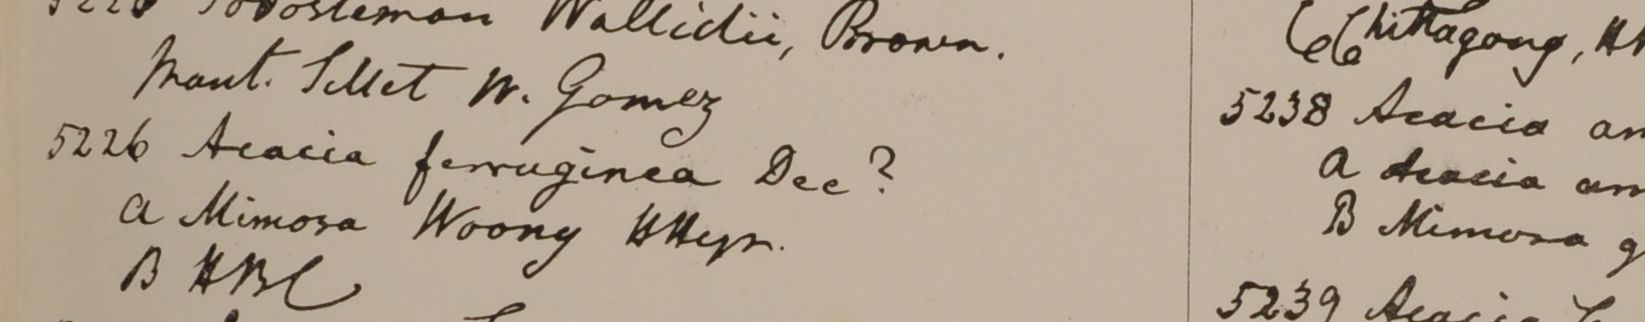 Wallichii, Brown.
Mont. Sillet W. Gomez
5226 Acacia ferruginea Dec?
a Mimosa Woony HHeyn.
B HBC
Chittagong, H
5238 Acacia am
a Acacia am
B Mimosa g
5239 Acacia